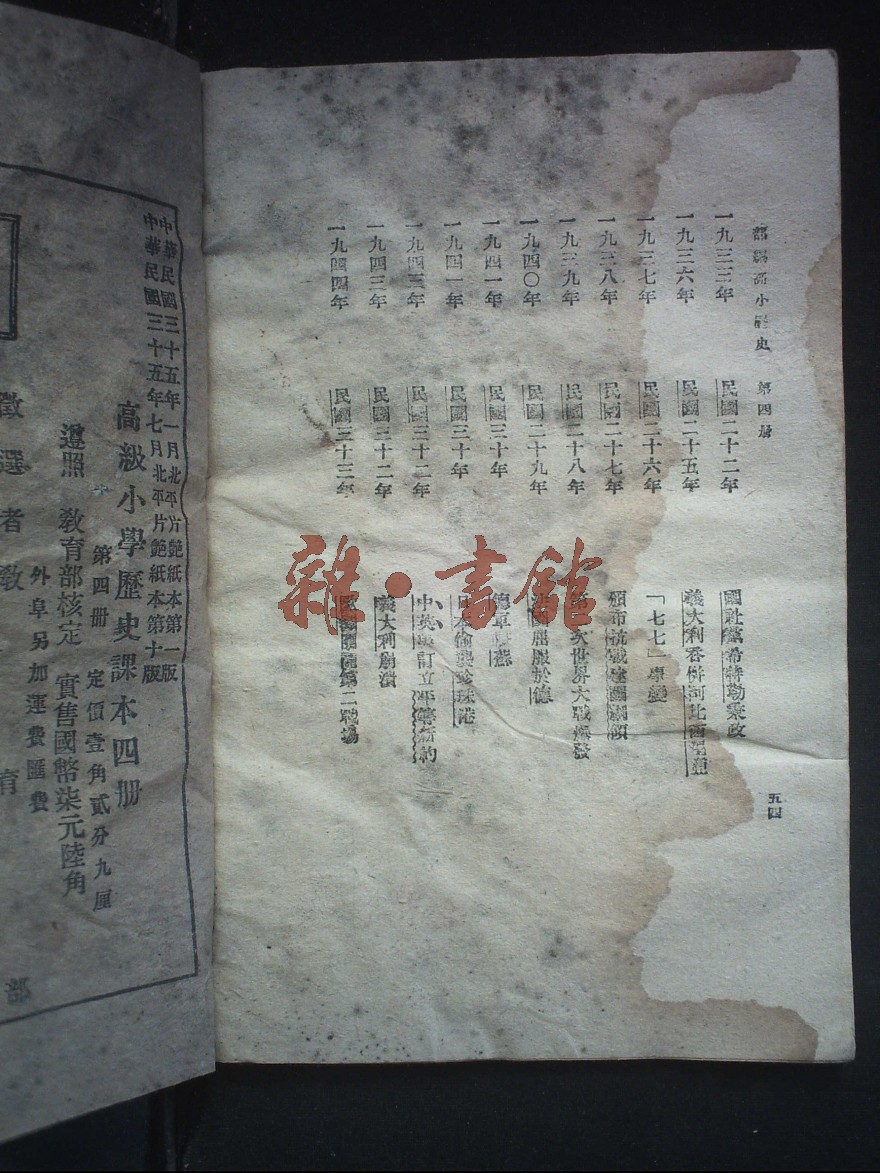 部編高小歷史 第四册 五四
一九三三年 民國二十二年 國社黨希特勒秉政
一九三六年 民國二十五年 義大利吞併河比西尼亞
一九三七年 民國二十六年 「七七」事變
一九三八年 民國二十七年 頒布抗戰建國綱領
一九三九年 民國二十八年 第二次世界大戰爆發
一九四〇年 民國二十九年 法國屈服於德
一九四一年 民國三十年 德軍侵蘇
一九四一年 民國三十年 日本偷襲珍珠港
一九四三年 民國三十二年 中英美訂立平等新約
一九四三年 民國三十二年 義大利崩潰
一九四四年 民國三十三年 第二戰場
雜·書館
中華民國三十五年一月北平片艷紙本第一版
中華民國三十五年七月北平片艷紙本第十版
高級小學歷史課本四册
第四册 定價壹角貳分九厘
遵照 教育部核定 實售國幣柒元陸角
外阜另加運費匯費
徵選者教育部